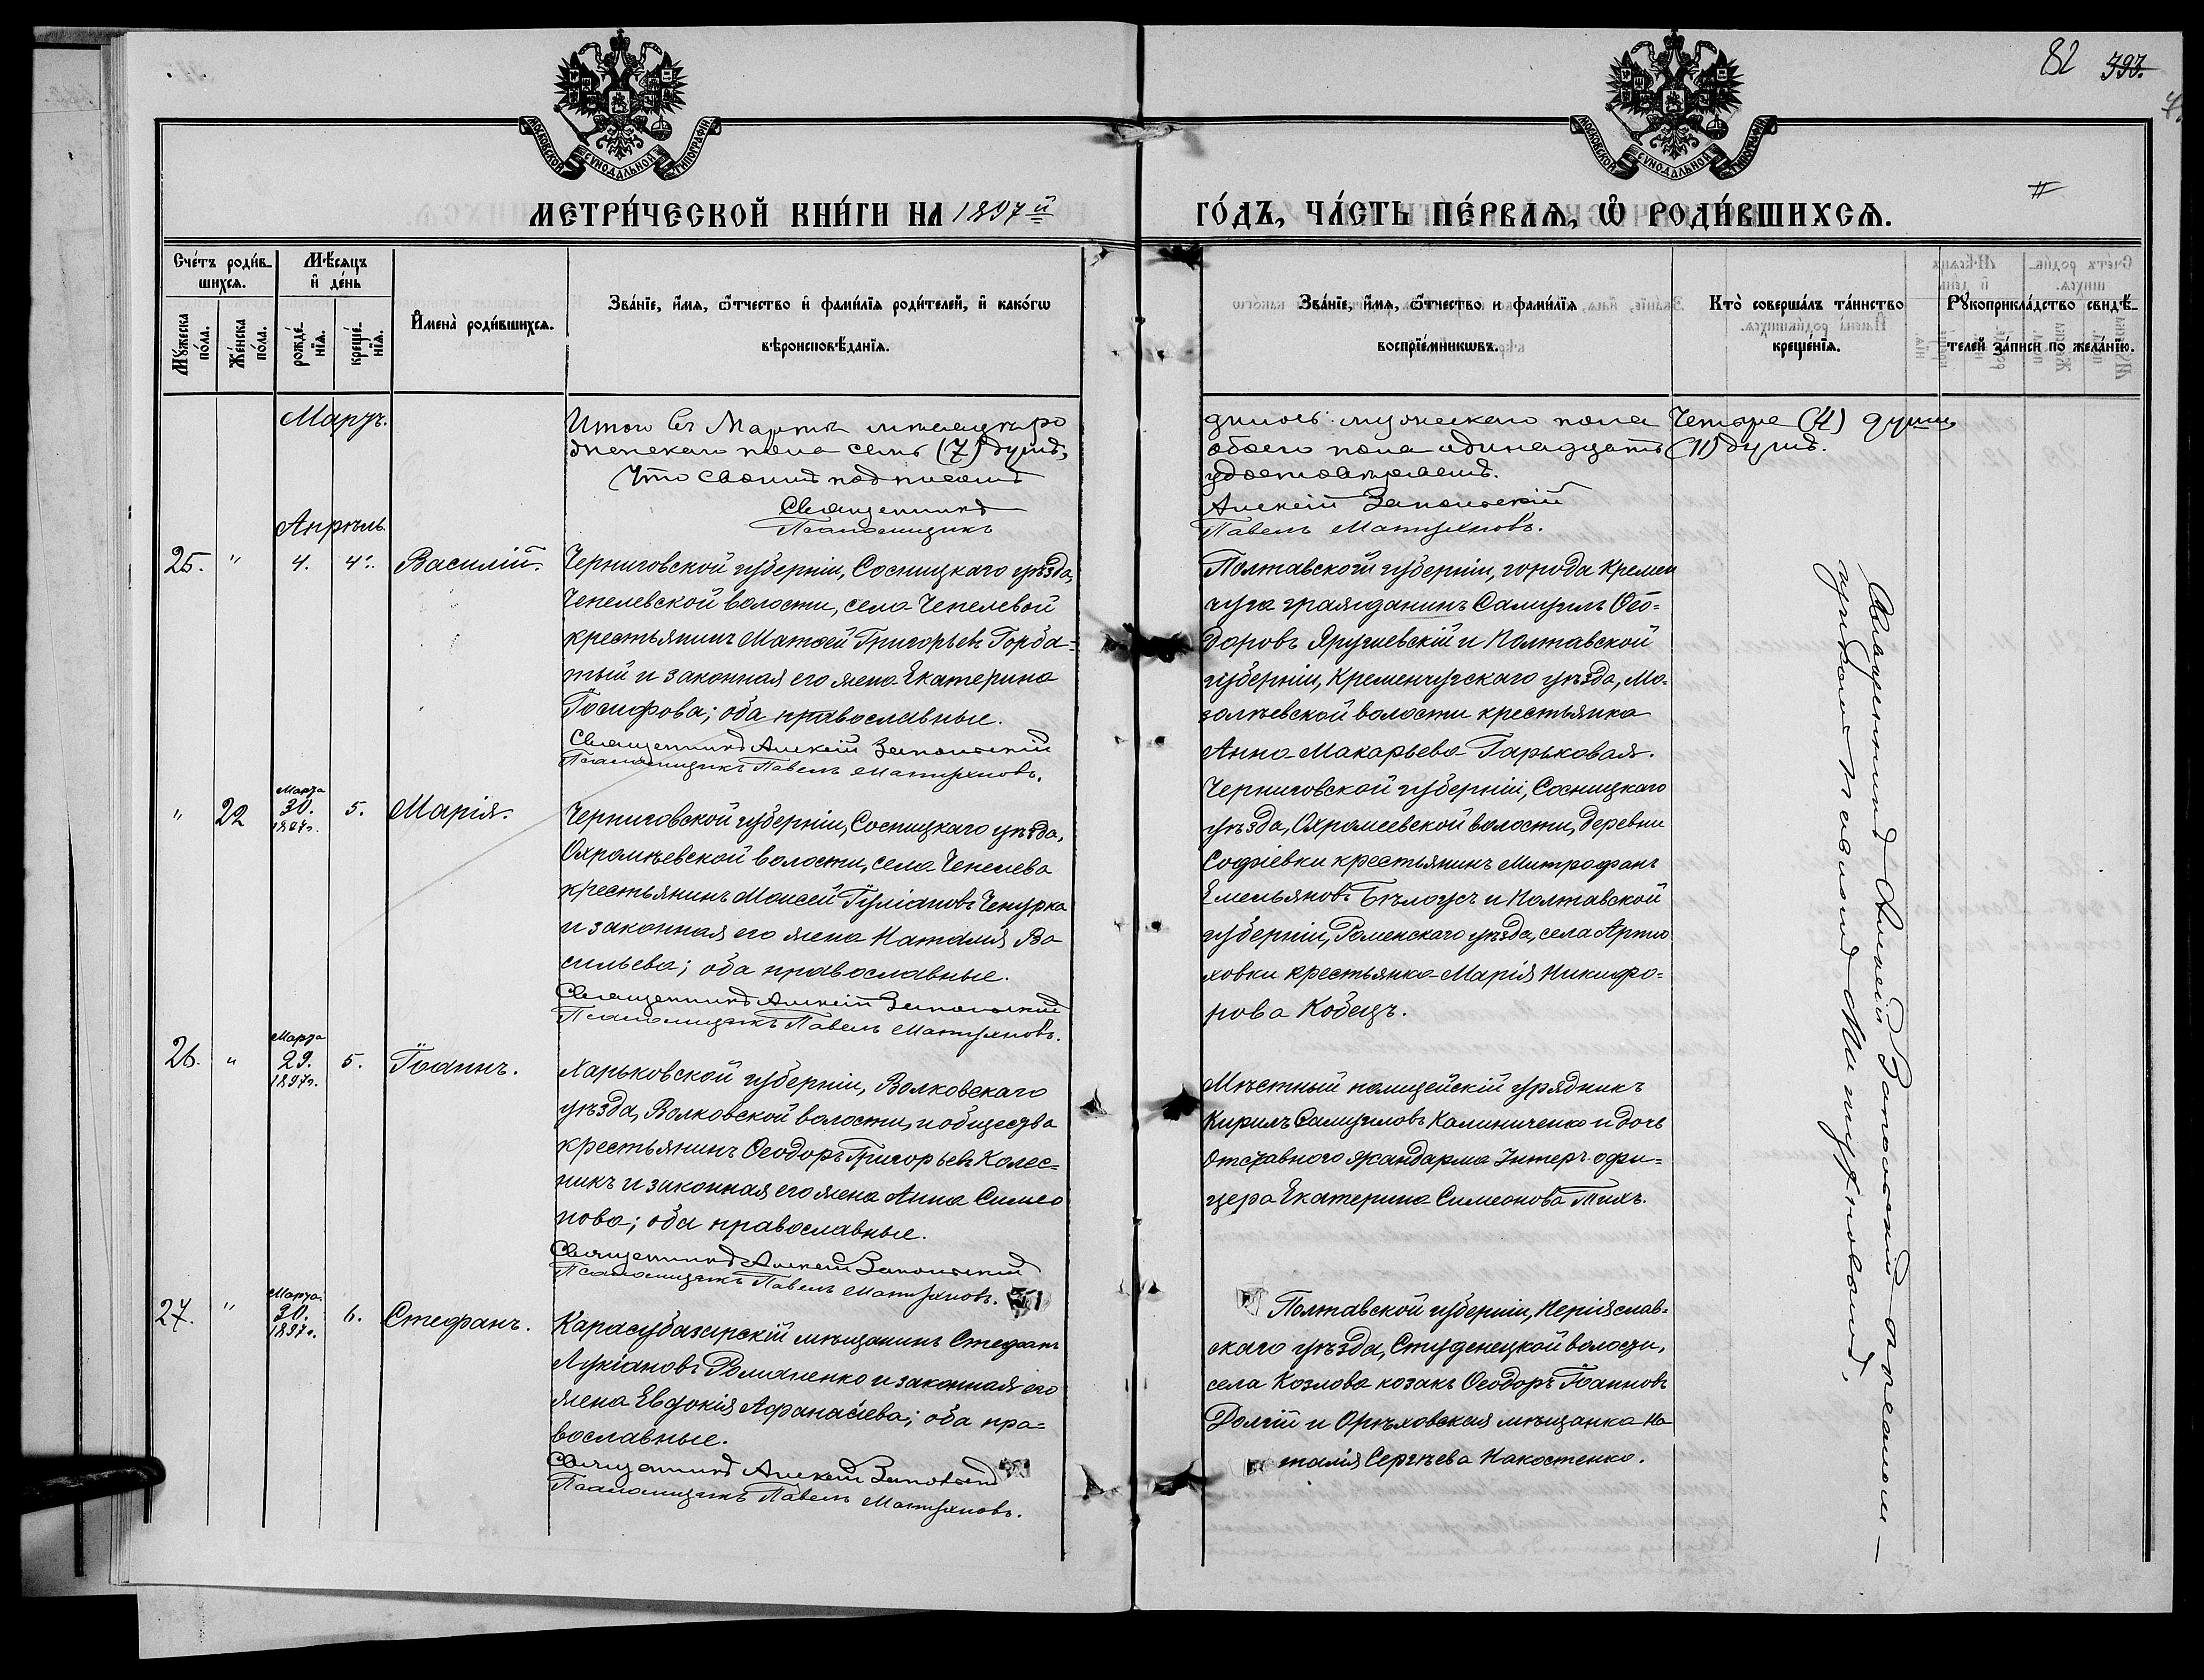 82 393.
МОСКОВСКОЙ СѴНОДАЛЬНОЙ ТИПОГРАФІИ
МОСКОВСКОЙ СѴНОДАЛЬНОЙ ТИПОГРАФІИ
МЕТРИ́ЧЕСКОЙ КНИ́ГИ НА 1897 й ГО́ДЪ, ЧА́СТЬ ПЕ́РВАѦ, Ѡ РОДИ́ВШИХСѦ.
Сче́тъ роди́в-
шихсѧ.
Мѣ́сѧцъ
и҆ де́нь
Мꙋ́жеска
по́ла.
Же́нска
по́ла.
рожде́-
нїѧ.
креще́-
нїѧ.
И҆мена̀ роди́вшихсѧ.
Зва́нїе, и҆́мѧ, ѻ҆́тчество и҆ фами́лїѧ роди́телей, и҆ како́гѡ
вѣроисповѣ́данїѧ.
Зва́нїе, и҆́мѧ, ѻ҆́тчество и фами́лїѧ
воспрїе́мникѡвъ.
Кто̀ соверша́лъ та́инство
креще́нїѧ.
Рꙋкоприкла́дство свидѣ́-
телей за́писи по жела́нїю.
Мартъ.
Итого въ Мартѣ мѣсяцѣ ро
женскаго пола семь (7) душъ,
Что своимъ подписомъ
Священникъ
Псаломщикъ
дилось: мужескаго пола Четыре (4) души,
обоего пола одинадцать (11) душъ.
удостовѣряемъ.
Алексій Запольскій
Павелъ Матухновъ.
Апрѣль.
25. " 4. 4. Василій.
Черниговской губерніи, Сосницкаго уѣзда,
Чепелевской волости, села Чепелевой
крестьянинъ Матѳей Григорьевъ Горба-
тый и законная его жена Екатерина
Іосифова; оба православные.
Священникъ Алексій Запольскій
Псаломщикъ Павелъ Матухновъ.
Полтавской губерніи, города Кремен
чуга гражданинъ Самуилъ Ѳео-
доровъ Яругиевскій и Полтавской
губерніи, Кременчугскаго уѣзда, Мо-
золѣевской волости крестьянка
Анна Макарьева Гарьковая.
" 22 Марта 30. 1897 г. 5. Марія.
Черниговской губерніи, Сосницкаго уѣзда,
Охрамѣевской волости, села Чепелева
крестьянинъ Моисей Іуліановъ Чепурка
и законная его жена Наталія Ва
сильева; оба православные.
Священникъ Алексій Запольскій
Псаломщикъ Павелъ Матухновъ.
Черниговской губерніи, Сосницкаго
уѣзда, Охромеевской волости, деревни
Софіевки крестьянинъ Митрофанъ
Емельяновъ Бѣлоусъ и Полтавской
губерніи, Роменскаго уѣзда, села Артю
ховки крестьянка Марія Никифо-
рова Кобецъ.
26. " Марта 29. 1897 г. 5. Іоаннъ.
Харьковской губерніи, Волковскаго
уѣзда, Волковской волости, и общества
крестьянинъ Ѳеодоръ Григорьевъ Колес-
никъ и законная его жена Анна Симео
нова; оба православные.
Священникъ Алексій Запольскій
Псаломщикъ Павелъ Матухновъ.
Мѣстный полицейскій урядникъ
Кирилъ Самуиловъ Калиниченко и дочь
отставного жандарма Унтеръ офи-
цера Екатерина Симеонова Тихъ.
27. " Марта 30. 1897 г. 6. Стефанъ.
Карасубазарскій мѣщанинъ Стефанъ
Лукіановъ Романенко и законная его
жена Евдокія Афанасіева; оба пра-
вославные.
Священникъ Алексій Запольскій
Псаломщикъ Павелъ Матухновъ.
Полтавской губерніи, Періяслав-
скаго уѣзда, Студенецкой волости,
села Козлова козакъ Ѳеодоръ Іоанновъ
Долгій и Орѣховская мѣщанка На
талія Сергѣева Накостенко.
Священникъ Алексій Запольскій съ псалом-
щикомъ Павломъ Матухновымъ.